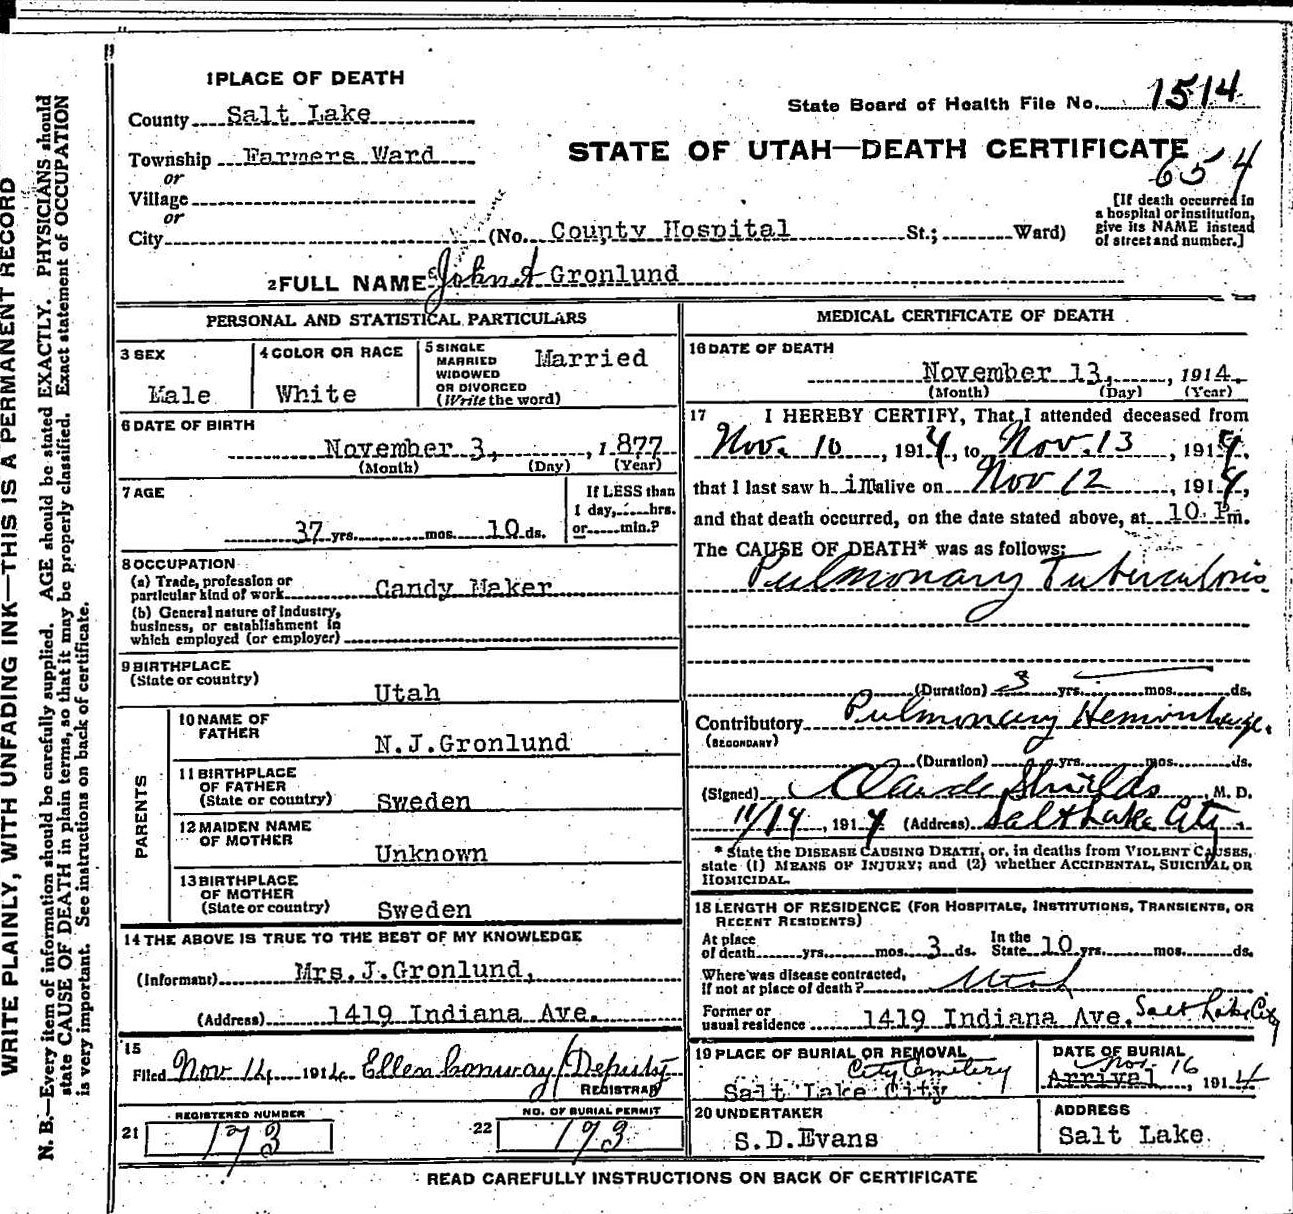 1 PLACE OF DEATH
County Salt Lake
Township Farmers Ward
or
Village
or
City
State Board of Health File No. 1514
STATE OF UTAH—DEATH CERTIFICATE
654
[If death occurred in
a hospital or institution,
give its NAME instead
of street and number.]
(No. County Hospital St.; Ward)
2 FULL NAME John A Gronlund
PERSONAL AND STATISTICAL PARTICULARS
3 SEX
Male
4 COLOR OR RACE
White
5 SINGLE
MARRIED
WIDOWED
OR DIVORCED
(Write the word)
Married
6 DATE OF BIRTH
November 3, , 1877
(Month) (Day) (Year)
7 AGE
37 yrs. mos. 10 ds.
If LESS than
1 day, hrs.
or min.?
8 OCCUPATION
(a) Trade, profession or
particular kind of work Candy Maker
(b) General nature of industry,
business, or establishment in
which employed (or employer)
9 BIRTHPLACE
(State or country)
Utah
PARENTS
10 NAME OF
FATHER
N.J.Gronlund
11 BIRTHPLACE
OF FATHER
(State or country) Sweden
12 MAIDEN NAME
OF MOTHER
Unknown
13 BIRTHPLACE
OF MOTHER
(State or country) Sweden
14 THE ABOVE IS TRUE TO THE BEST OF MY KNOWLEDGE
(Informant) Mrs.J.Gronlund,
(Address) 1419 Indiana Ave.
15
Filed Nov 14, 1914 Ellen Conway / Deputy
REGISTRAR
REGISTERED NUMBER
21 173
NO. OF BURIAL PERMIT
22 173
MEDICAL CERTIFICATE OF DEATH
16 DATE OF DEATH
November 13, , 1914.
(Month) (Day) (Year)
17 I HEREBY CERTIFY, That I attended deceased from
Nov. 10 , 1914, to Nov. 13 , 1914,
that I last saw h im alive on Nov 12 , 1914,
and that death occurred, on the date stated above, at 10 P m.
The CAUSE OF DEATH* was as follows:
Pulmonary Tuberculosis
(Duration) 3 yrs. mos. ds.
Contributory Pulmonary Hemorrhage.
(SECONDARY)
(Duration) yrs. mos. ds.
(Signed) Claude Shields M. D.
11/14 , 1914 (Address) Salt Lake City.
* State the DISEASE CAUSING DEATH, or, in deaths from VIOLENT CAUSES,
state (1) MEANS OF INJURY; and (2) whether ACCIDENTAL, SUICIDAL OR
HOMICIDAL.
18 LENGTH OF RESIDENCE (FOR HOSPITALS, INSTITUTIONS, TRANSIENTS, OR
RECENT RESIDENTS)
At place
of death yrs. mos. 3 ds.
In the
State 10 yrs. mos. ds.
Where was disease contracted,
if not at place of death? Utah
Former or
usual residence 1419 Indiana Ave. Salt Lake City
19 PLACE OF BURIAL OR REMOVAL
City Cemetery
Salt Lake City
DATE OF BURIAL
Nov. 16
Arrival , 1914
20 UNDERTAKER
S.D.Evans
ADDRESS
Salt Lake
READ CAREFULLY INSTRUCTIONS ON BACK OF CERTIFICATE
WRITE PLAINLY, WITH UNFADING INK—THIS IS A PERMANENT RECORD
N. B.—Every item of information should be carefully supplied. AGE should be stated EXACTLY. PHYSICIANS should
state CAUSE OF DEATH in plain terms, so that it may be properly classified. Exact statement of OCCUPATION
is very important. See instructions on back of certificate.